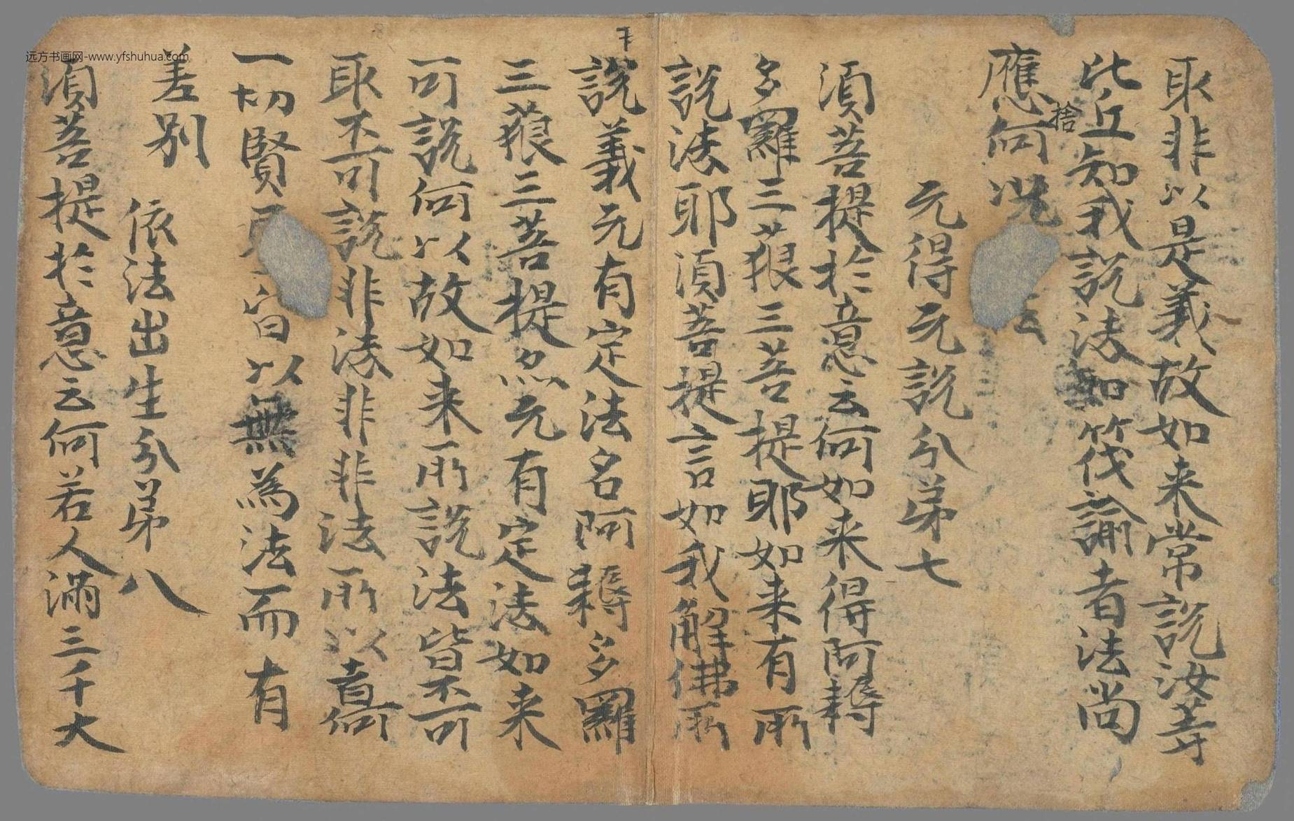 取非以是義故如来常説汝等
比丘知我説法如筏諭者法尚
應捨何况法
元得元説分苐七
湏菩提扵意云何如来得阿耨
多羅三藐三菩提耶如来有所
説法耶湏菩提言如我解佛所
説義元有定法名阿耨多羅
三藐三菩提亦元有定法如来
可説何以故如来所説法皆不可
取不可説非法非非法所以者何
一切賢皆以無為法而有
差别
依法出生分苐八
湏菩提扵意云何若人满三千大
远方书画网-www.yfshuhua.com